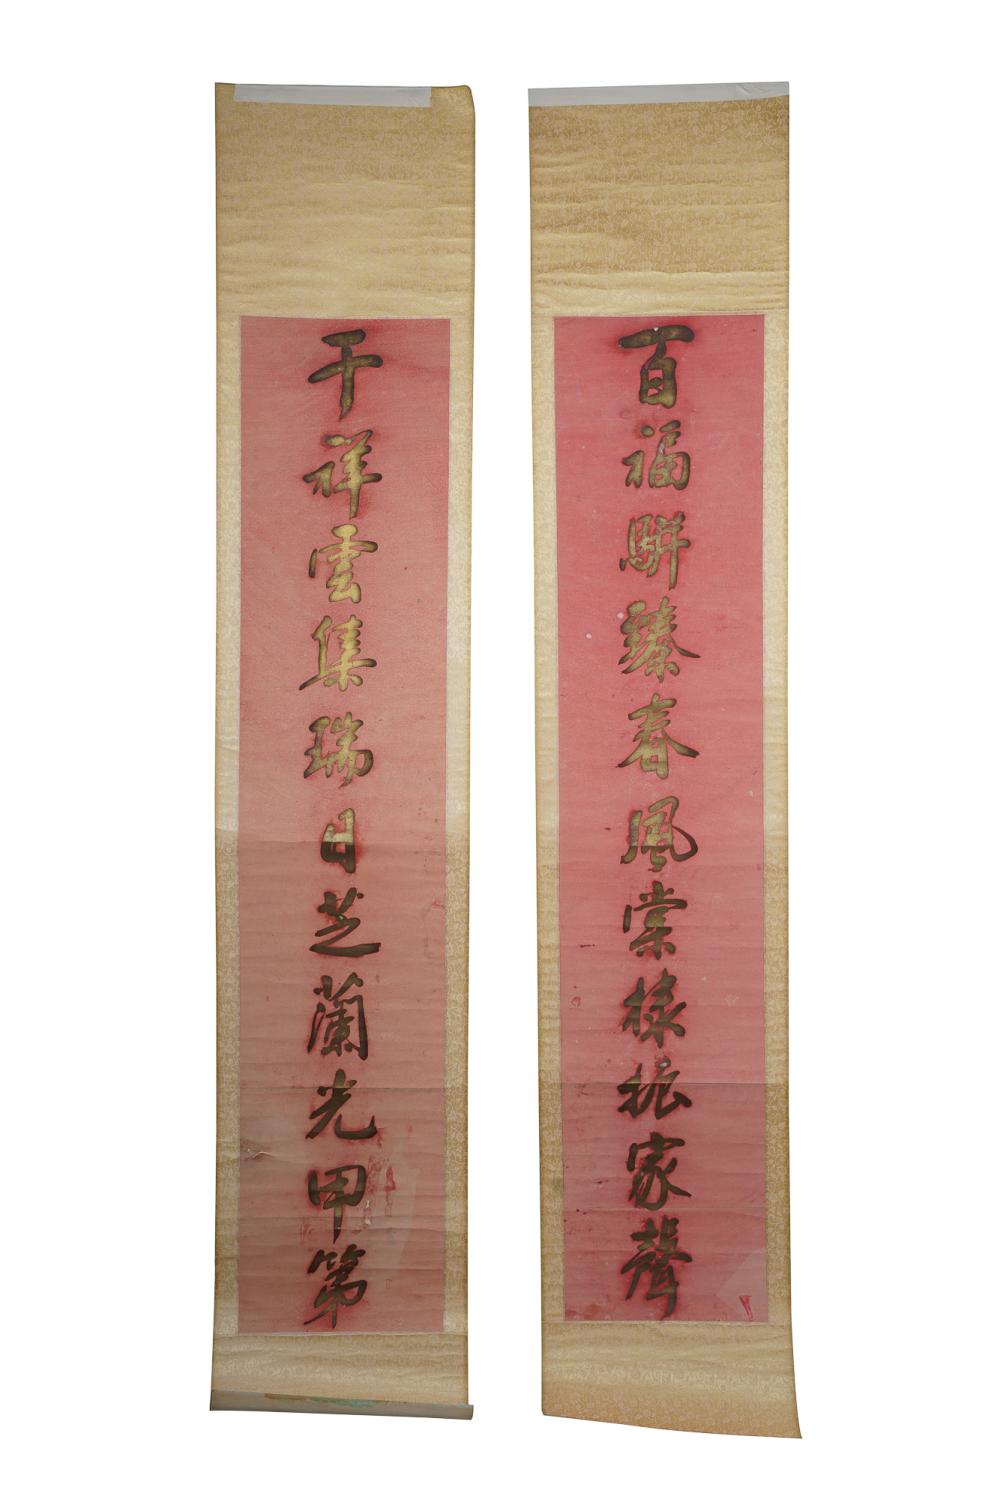 百福駢臻春風棠棣振家聲
千祥雲集瑞日芝蘭光甲第